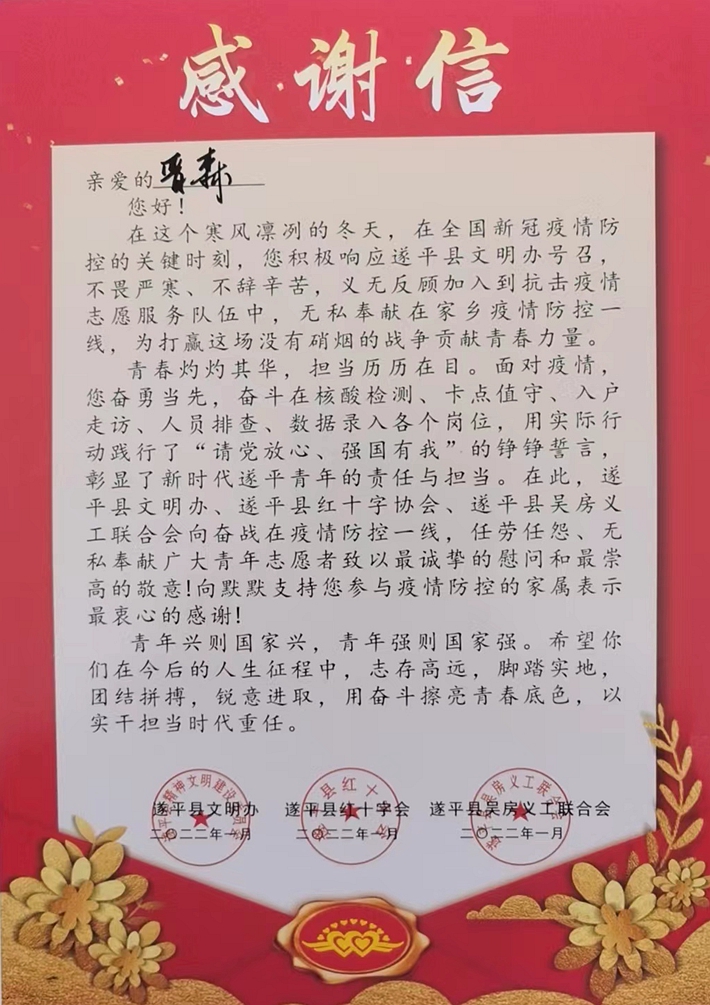 感谢信
亲爱的晋森
您好！
在这个寒风凛冽的冬天，在全国新冠疫情防
控的关键时刻，您积极响应遂平县文明办号召，
不畏严寒、不辞辛苦，义无反顾加入到抗击疫情
志愿服务队伍中，无私奉献在家乡疫情防控一
线，为打赢这场没有硝烟的战争贡献青春力量。
青春灼灼其华，担当历历在目。面对疫情，
您奋勇当先，奋斗在核酸检测、卡点值守、入户
走访、人员排查、数据录入各个岗位，用实际行
动践行了“请党放心、强国有我”的铮铮誓言，
彰显了新时代遂平青年的责任与担当。在此，遂
平县文明办、遂平县红十字协会、遂平县吴房义
工联合会向奋战在疫情防控一线，任劳任怨、无
私奉献广大青年志愿者致以最诚挚的慰问和最崇
高的敬意!向默默支持您参与疫情防控的家属表示
最衷心的感谢!
青年兴则国家兴，青年强则国家强。希望你
们在今后的人生征程中，志存高远，脚踏实地，
团结拼搏，锐意进取，用奋斗擦亮青春底色，以
实干担当时代重任。
遂平县文明办 遂平县红十字会 遂平县吴房义工联合会
二〇二二年一月 二〇二二年一月 二〇二二年一月